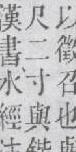 以徵召也
尺二寸與
漢書水經